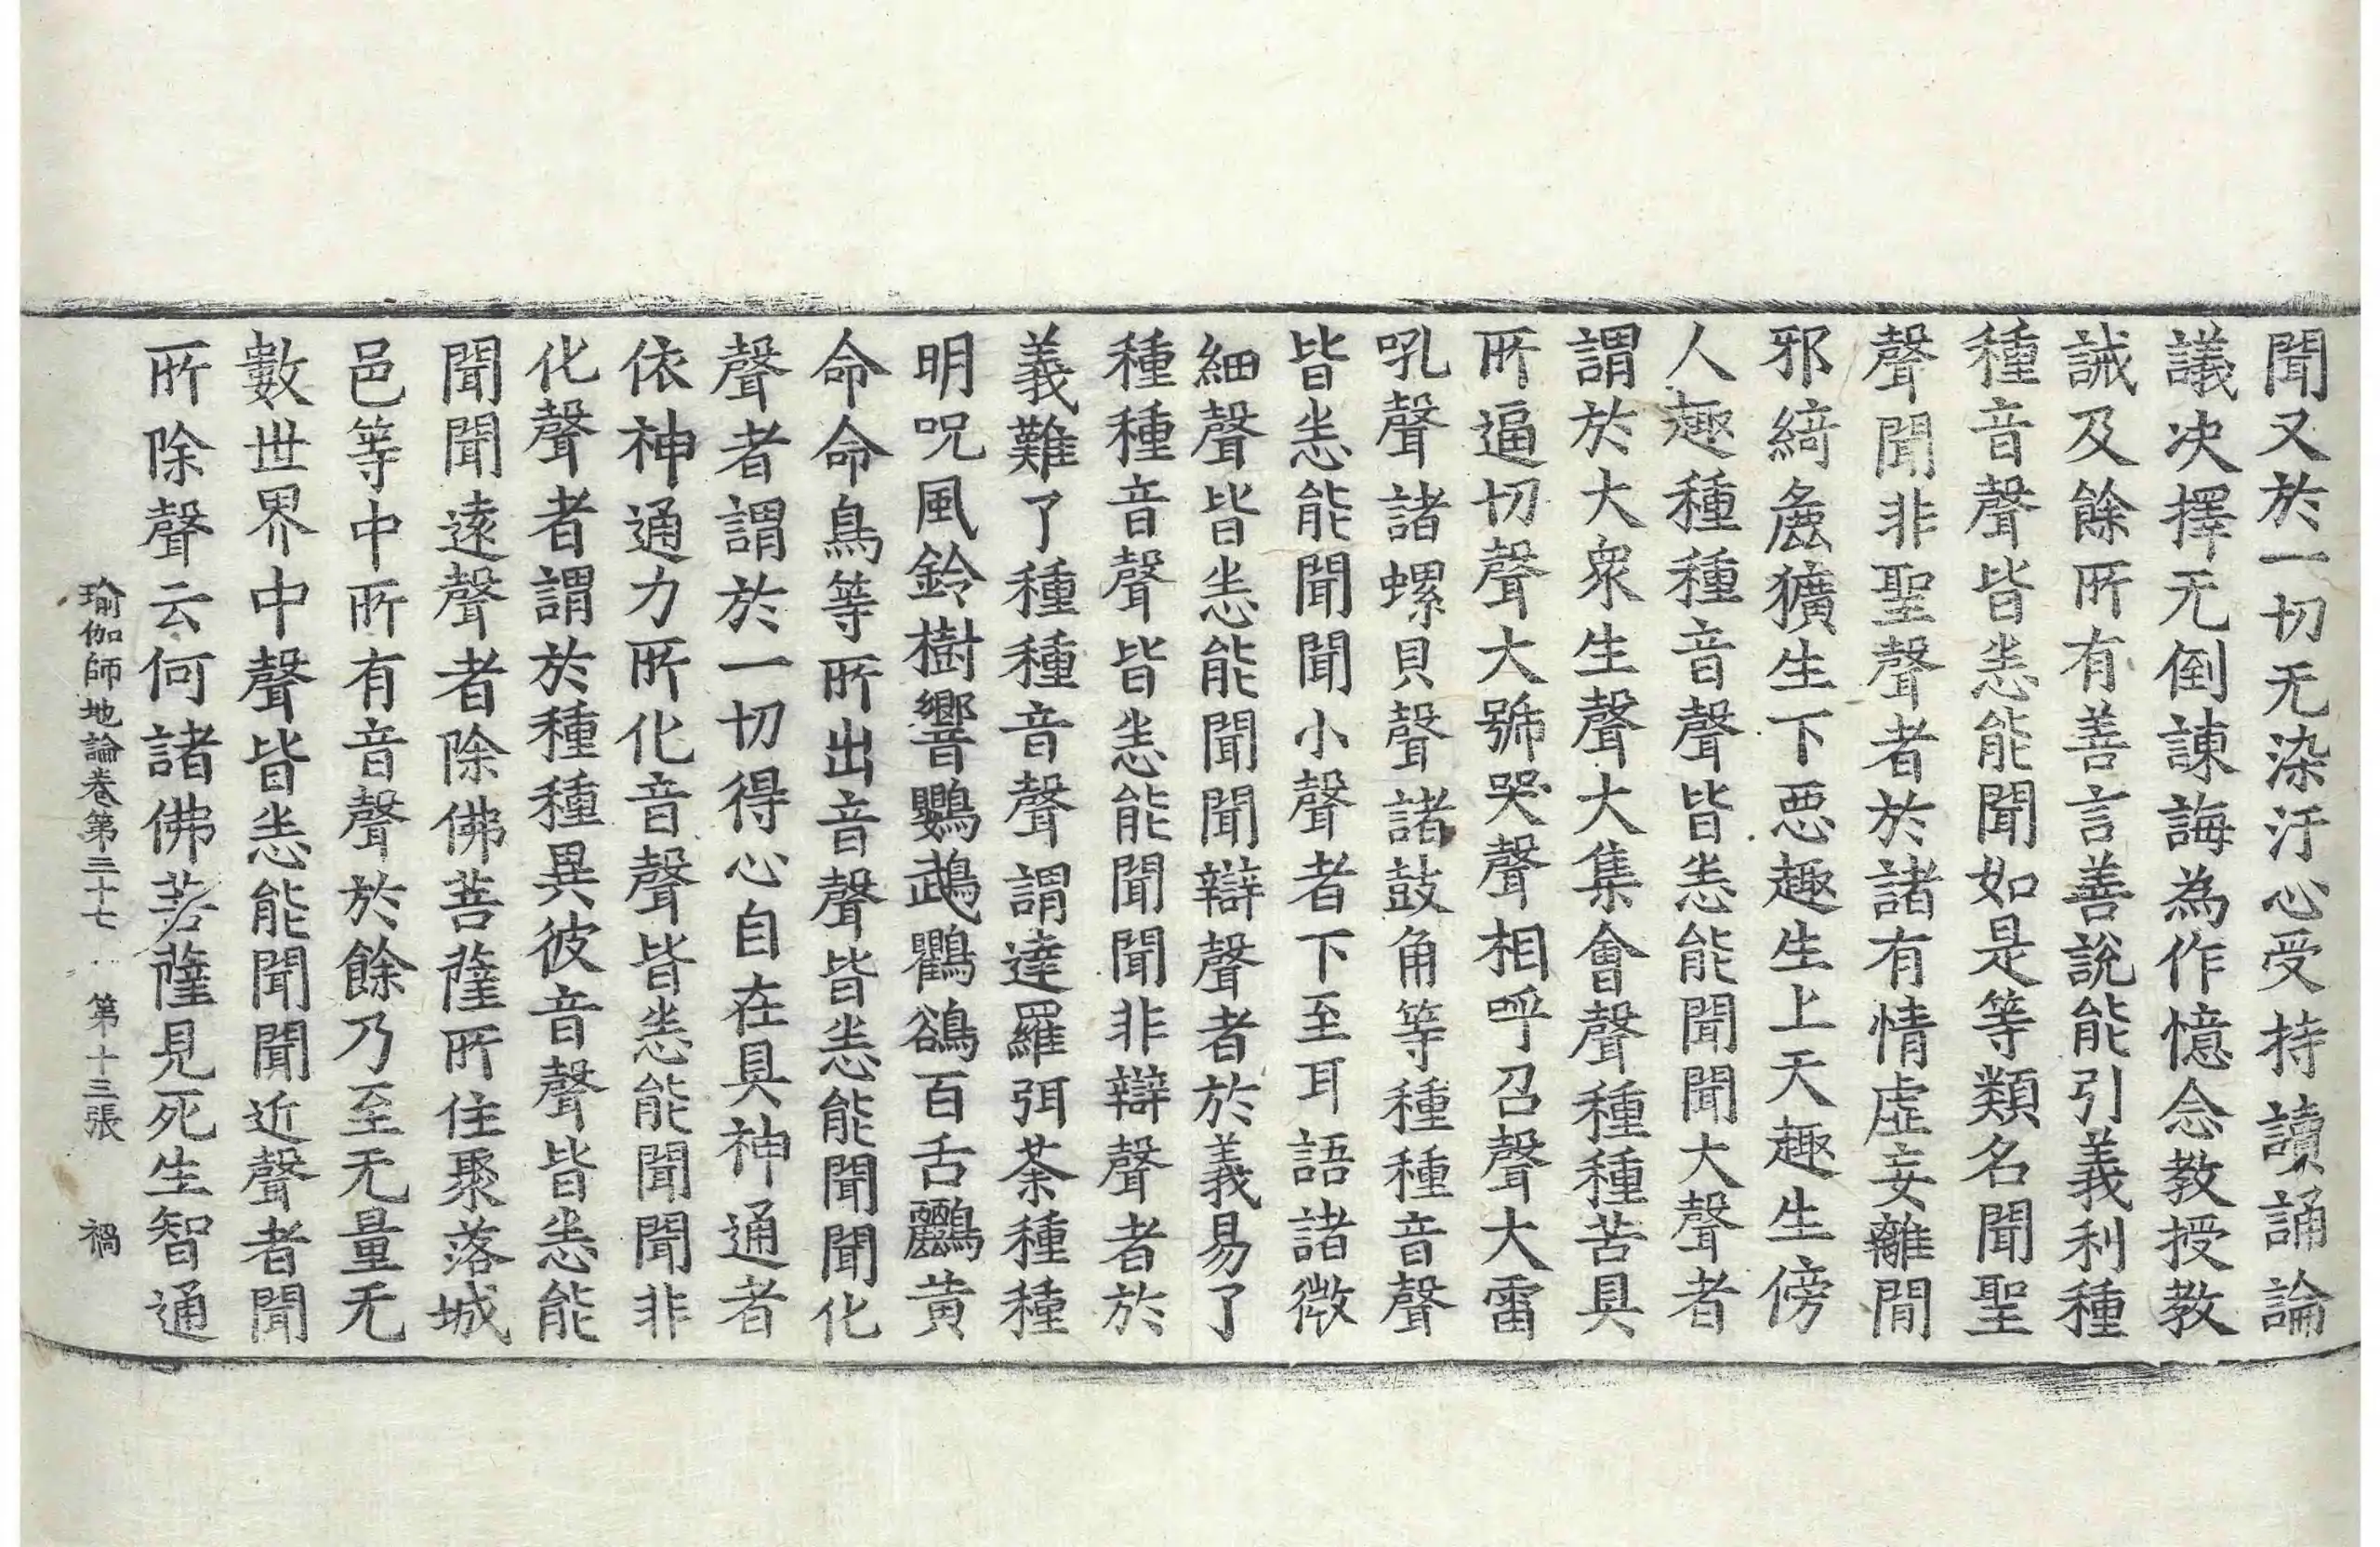 聞又於一切无染汙心受持讀誦論
議决擇无倒諌誨為作憶念教授教
誡及餘所有善言善說能引義利種
種音聲皆悉能聞如是等類名聞聖
聲聞非聖聲者於諸有情虛妄離間
邪綺麁獷生下惡趣生上天趣生傍
人趣種種音聲皆悉能聞聞大聲者
謂於大衆生聲大集會聲種種苦具
所逼切聲大號哭聲相呼召聲大雷
吼聲諸螺貝聲諸鼓角等種種音聲
皆悉能聞聞小聲者下至耳語諸微
細聲皆悉能聞聞辯聲者於義易了
種種音聲皆悉能聞聞非辯聲者於
義難了種種音聲謂達羅弭荼種種
明呪風鈴樹響鸚鵡鸜鵒百舌鸝黃
命命鳥等所出音聲皆悉能聞聞化
聲者謂於一切得心自在具神通者
依神通力所化音聲皆悉能聞聞非
化聲者謂於種種異彼音聲皆悉能
聞聞遠聲者除佛菩薩所住聚落城
邑等中所有音聲於餘乃至无量无
數世界中聲皆悉能聞聞近聲者聞
所除聲云何諸佛菩薩見死生智通
瑜伽師地論卷第三十七 第十三張 禍